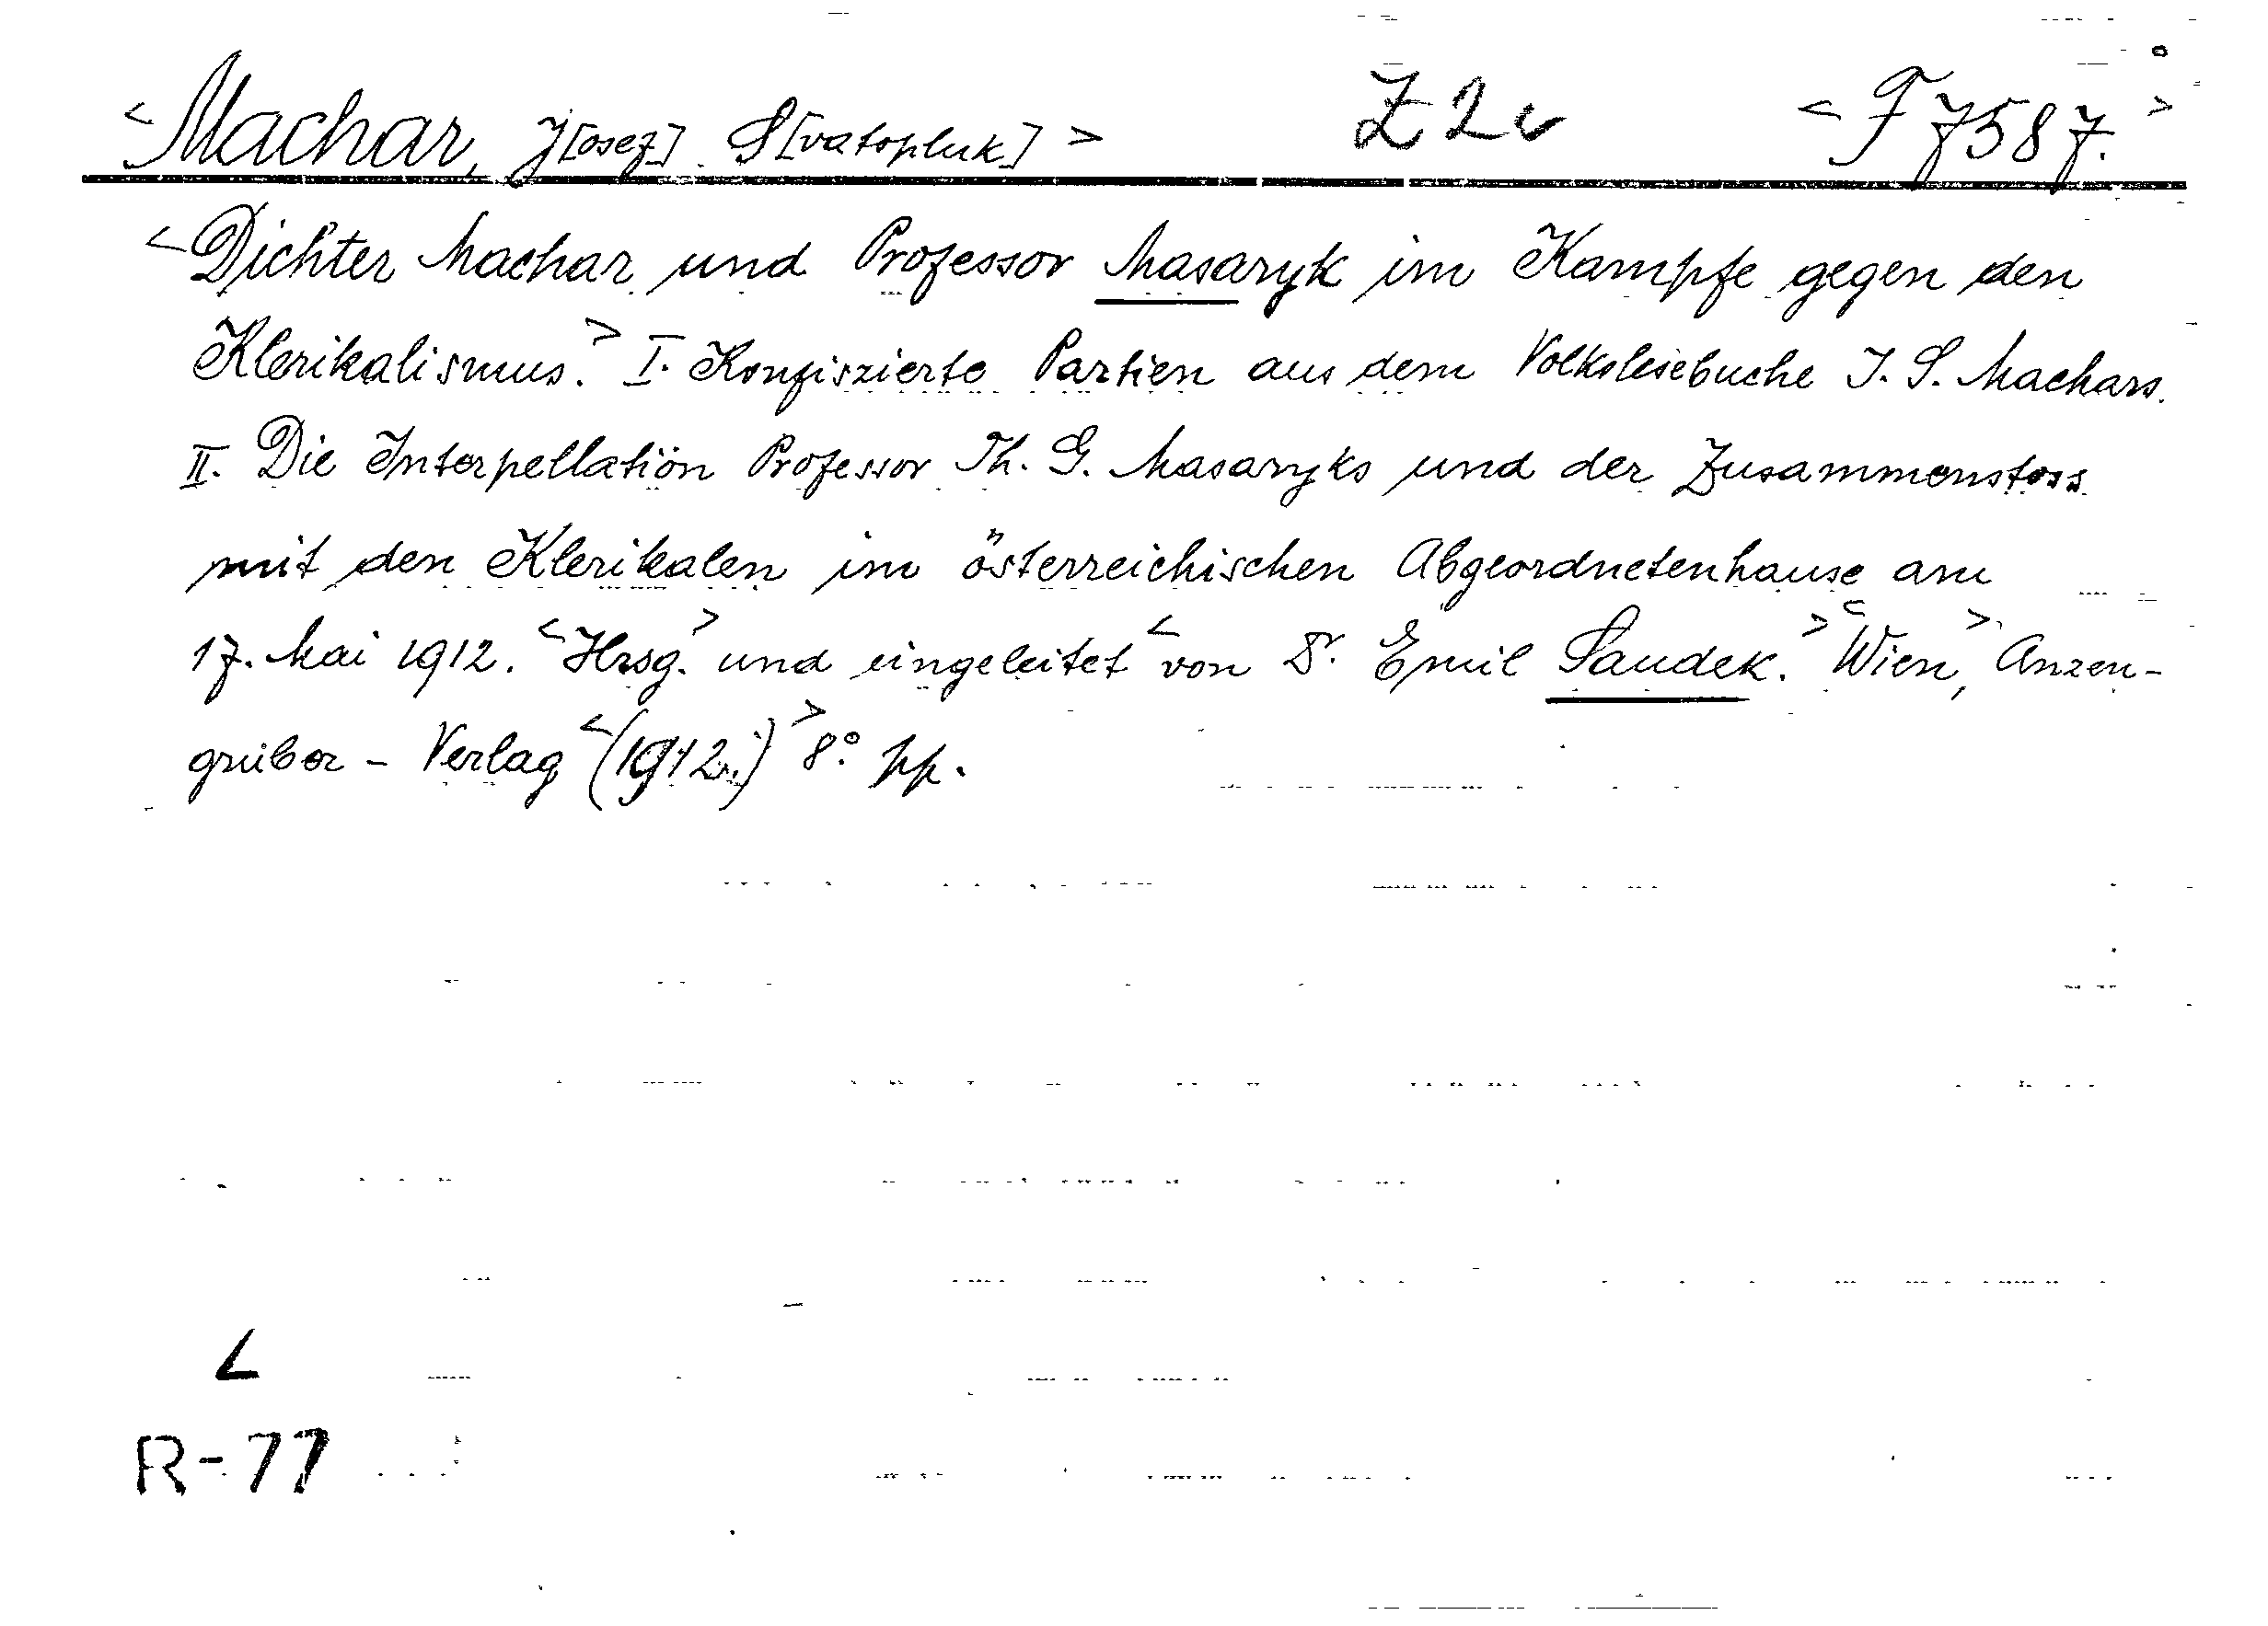 <Machar, J[osef] S[vatopluk]> Z2v <F 7587.>
<Dichter Machar und Professor Masaryk im Kampfe gegen den
Klerikalismus.> I. Konfiszierte Partien aus dem Volkslesebuche J. S. Machars.
II. Die Interpellation Professor Th. G. Masaryks und der Zusammenstoss
mit den Klerikalen im österreichischen Abgeordnetenhause am
17. Mai 1912. <Hrsg.> und eingeleitet <von Dr. Emil Saudek.> <Wien,> Anzen-
gruber - Verlag <(1912.)> 8° pp.
<
R-77